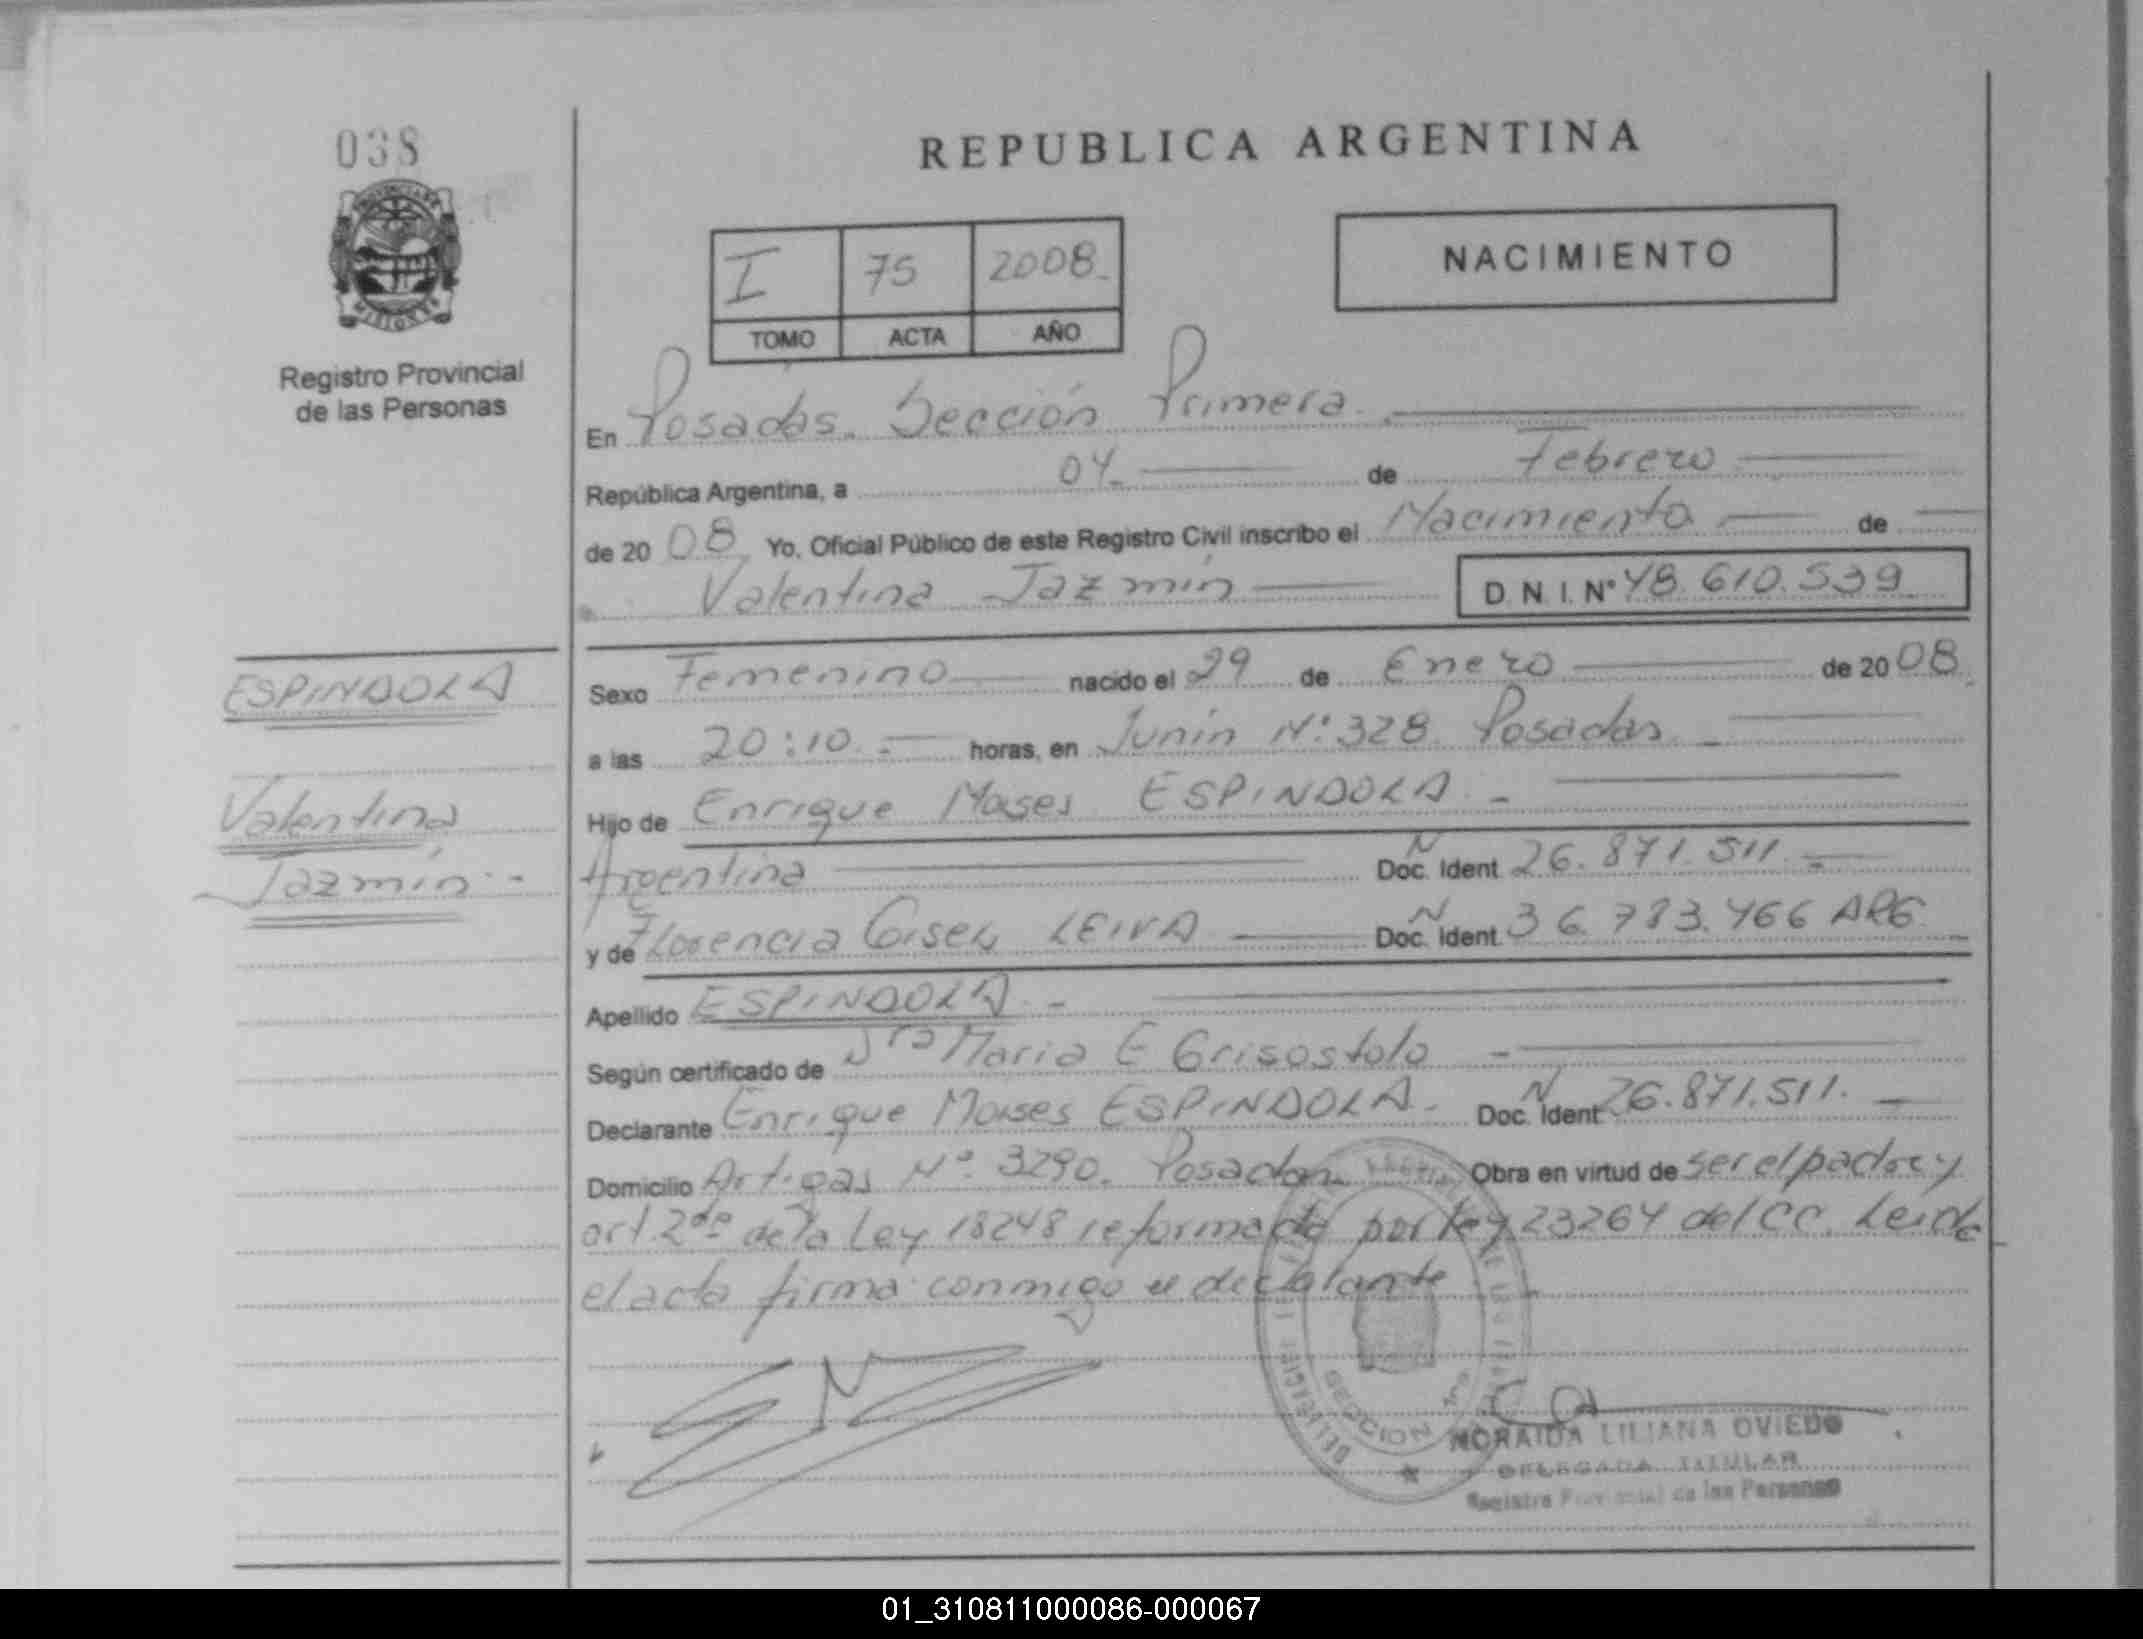 038
REPUBLICA ARGENTINA
NACIMIENTO
I 75 2008
TOMO ACTA AÑO
MISIONES
Registro Provincial
de las Personas
En Posadas. Sección Primera
República Argentina, a 04 de Febrero
de 2008 Yo, Oficial Público de este Registro Civil inscribo el Nacimiento de
Valentina Jazmín D.N.I. Nº 48.610.539
ESPINDOLA
Sexo Femenino nacido el 29 de Enero de 2008
a las 20:10 horas, en Junín Nº 328 Posadas
Valentina
Hijo de Enrique Moises ESPINDOLA
Jazmín
Argentina Doc. Ident. N 26.871.511
y de Florencia Gisel LEIVA Doc. Ident. N 36.783.466 ARG
Apellido ESPINDOLA
Según certificado de Maria E Grisostolo
Declarante Enrique Moises ESPINDOLA Doc. Ident. N 26.871.511.
Domicilio Artigas Nº 3290. Posadas Obra en virtud de ser el padre y
art. 2do de la Ley 18248 reformada por Ley 23264 del CC. Leida
el acta firma conmigo el declarante
SECCION 1ra
NORAIDA LILIANA OVIEDO
DELEGADA TITULAR
Registro Provincial de las Personas
01_310811000086-000067